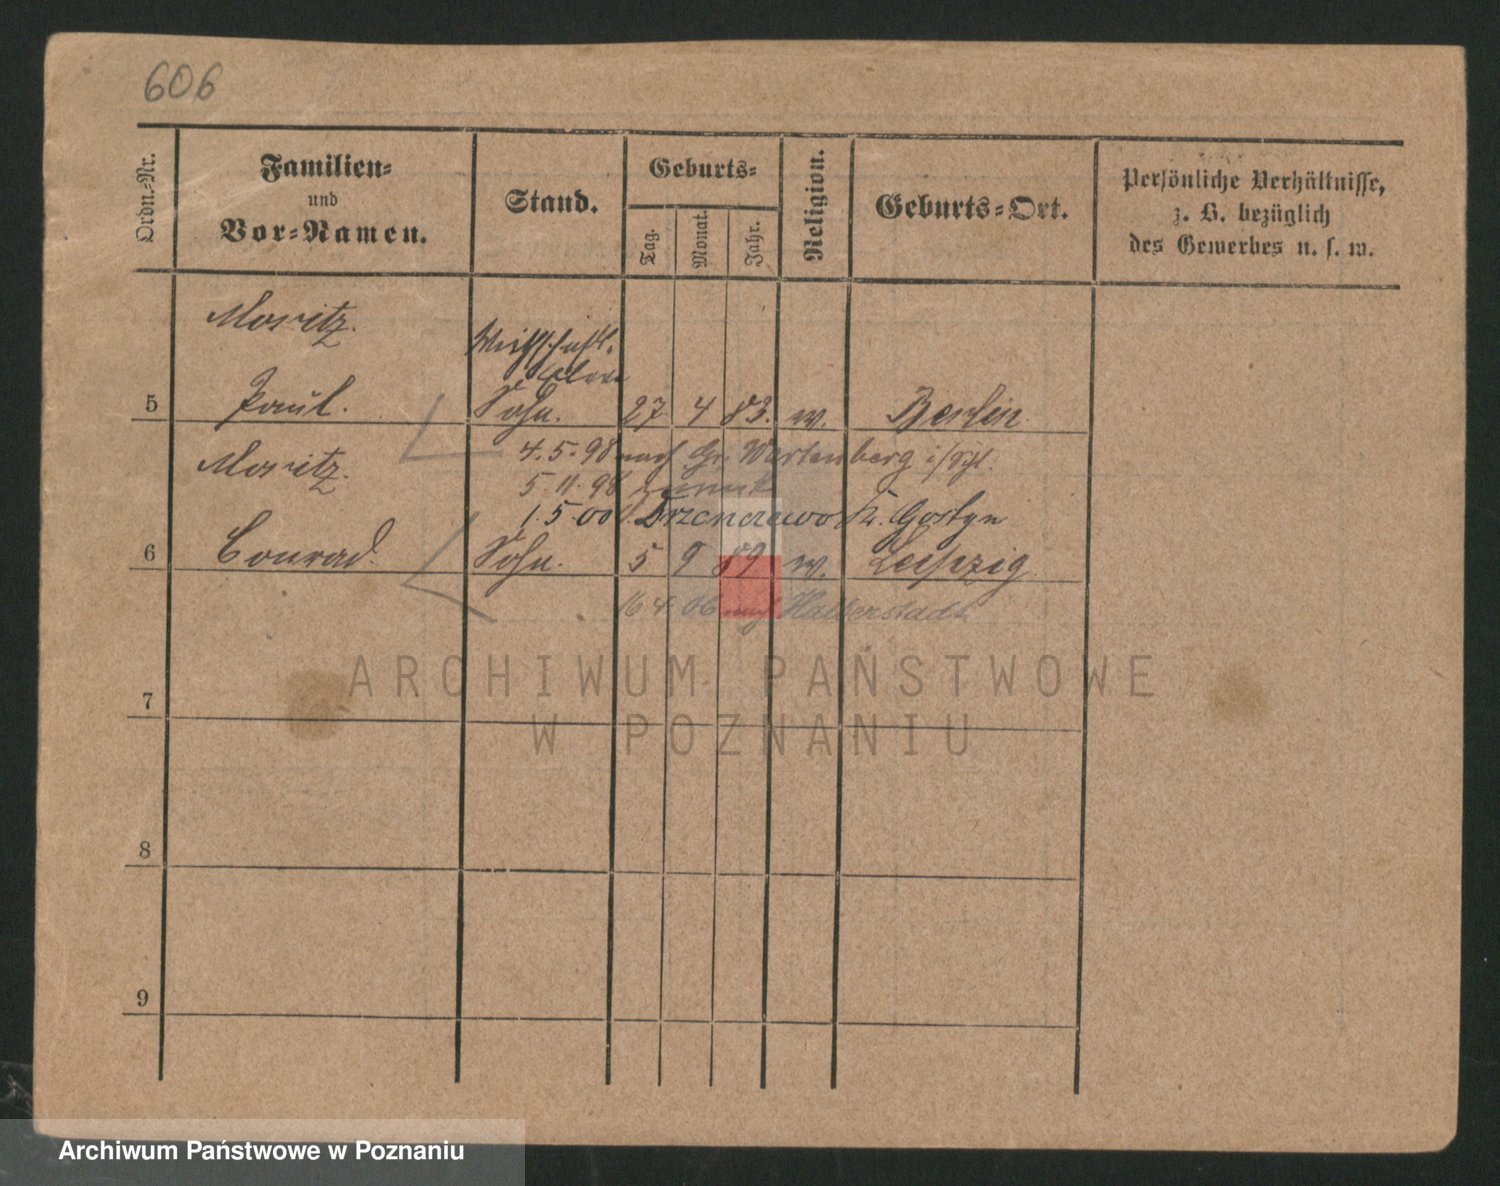 606
Ordn.-Nr.
Familien-
und
Vor-Namen.
Stand.
Geburts-
Tag.
Monat.
Jahr.
Religion.
Geburts-Ort.
Persönliche Verhältnisse,
z. B. bezüglich
des Gewerbes u. s. w.
Moritz.
Wirthschafts-
Eleve
5 Paul. Sohn. 27 4 83. ev. Berlin.
4.5.98 nach Gr. Wartenberg i/Schl.
Moritz.
5.11.98 zurück
1.5.00 Kr. Gostyn
6 Conrad. Sohn. 5 9 89. ev. Leipzig
16 4 06 nach Halberstadt
ARCHIWUM PAŃSTWOWE
W POZNANIU
7
8
9
Archiwum Państwowe w Poznaniu